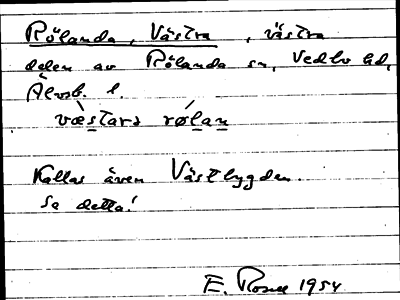 Rölanda, Västra, västra
delen av Rölanda sn, Vedbo hd,
Älvsb. l.
væ̀starə røḷan
Kallas även Västbygden.
Se detta!
E. Rosell 1954